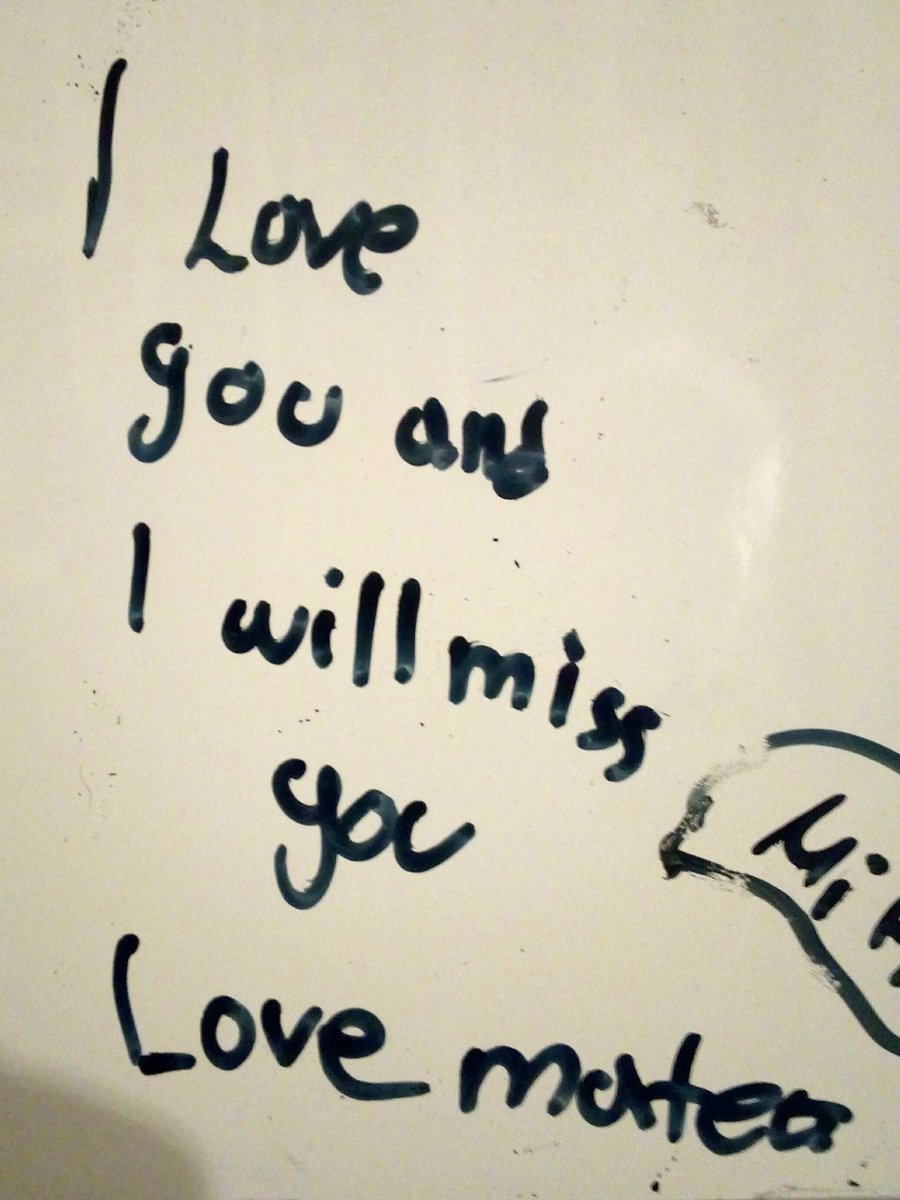 I Love
you and
I will miss
you
Love matea